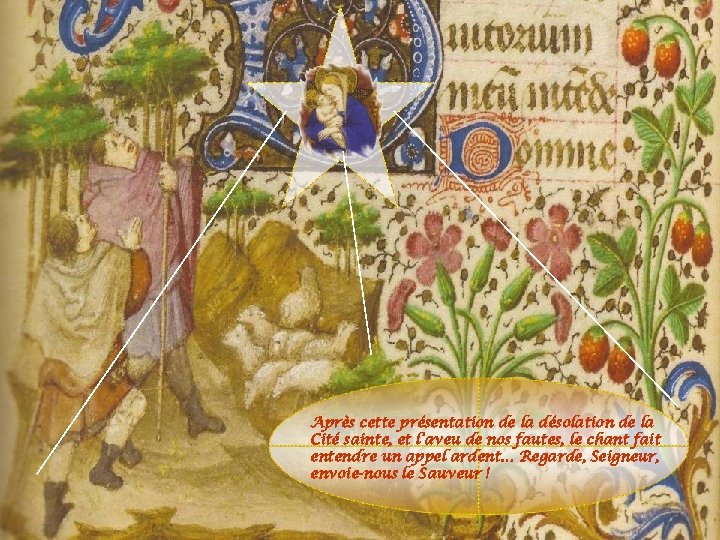 uitorium
meū intēde
Domine
Après cette présentation de la désolation de la
Cité sainte, et l'aveu de nos fautes, le chant fait
entendre un appel ardent... Regarde, Seigneur,
envoie-nous le Sauveur !